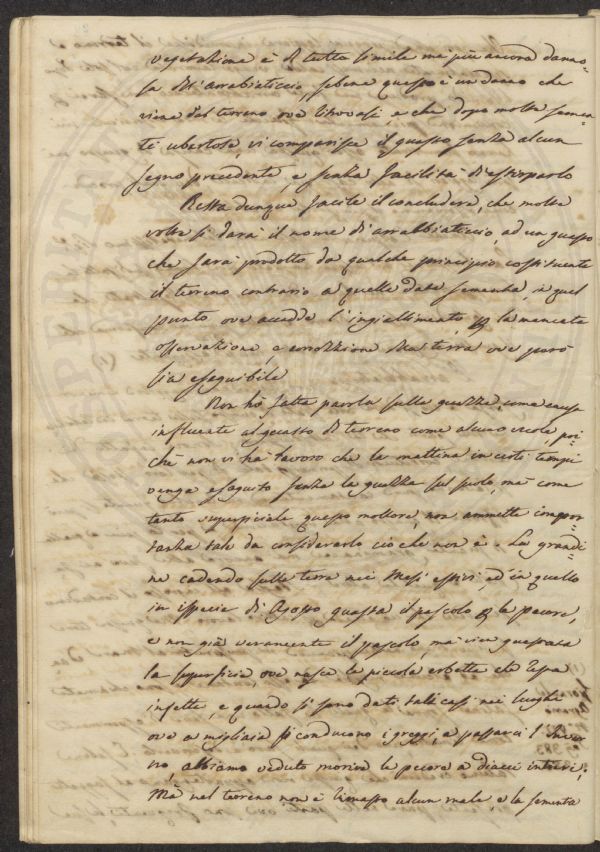 vegetazione è di tutto simile ma più ancora danno=
sa dell'arrabiaticcio, sebene questo è un danno che
viene dal terreno ove ritrovasi, e che dopo molte semen=
te ubertose, vi comparisce il guasto senza alcun
segno precedente, e senza facilità di estirparlo
Resta dunque facile il concludere, che molte
volte si darà il nome di arrabbiaticcio, ad un guasto
che sarà prodotto da qualche principio costituente
il terreno contrario a quelle date sementa, in quel
punto ove accadde l'ingiallimento, per la mancata
osservazione, e correzione della terra ove però
sia eseguibile
Non hò fatta parola sulla guazza, come causa
influente al guasto di terreno come alcuno crede, poi=
chè non vi hà lavoro che la mattina in certi tempi
venga eseguito senza la guazza sul suolo, mà come
tanto superficiale questo mollore, non ammette impor=
tanza tale da considerarlo ciò che non è. La grandi=
ne cadendo sulla terra nei Mesi estivi, ed in quello
in ispecie di Agosto guasta il pascolo per le pecore,
e non già veramente il pascolo, ma vien guastata
la superficie, ove nasce le piccole erbette che resta
infette, e quando si sono dati tali casi nei luoghi
ove a migliaia si conducono i greggi, a passarci l'Inver=
no, abbiamo veduto morire le pecore a diacci interi;
Mà nel terreno non è rimasto alcun male, e la sementa